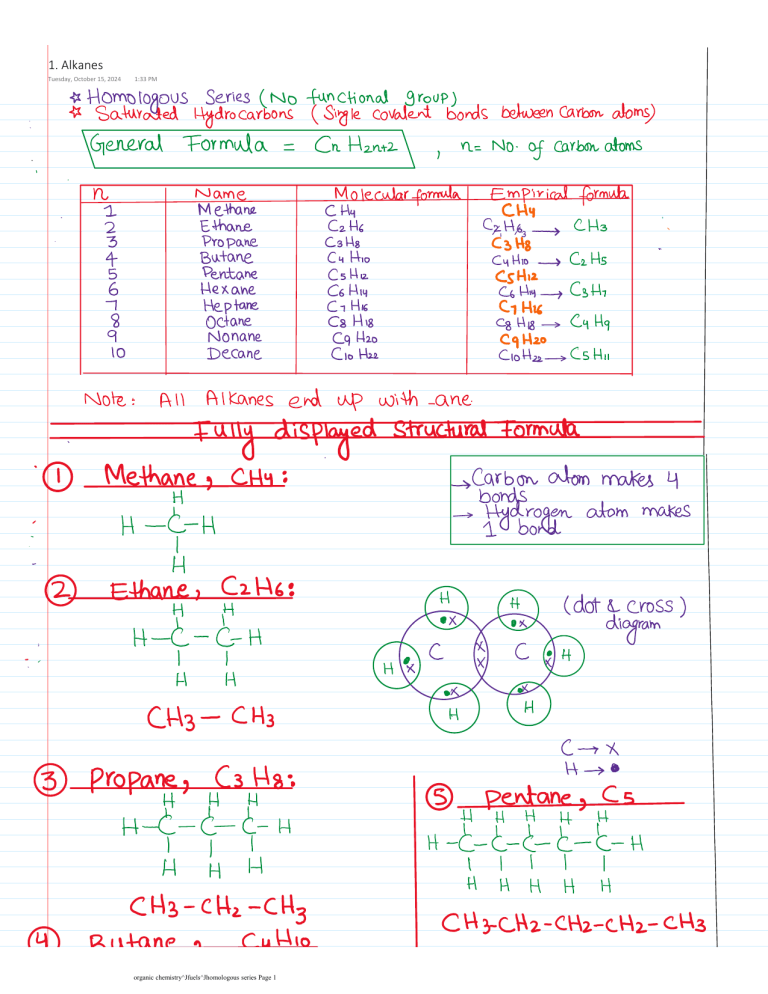 1. Alkanes
Tuesday, October 15, 2024 1:33 PM
☆ Homologous Series (No functional group)
☆ Saturated Hydrocarbons (Single covalent bonds between Carbon atoms)
General Formula = CnH2n+2 , n= No. of Carbon atoms
n Name Molecular formula Empirical formula
1 Methane CH4 CH4
2 Ethane C2H6 C2H6 → CH3
3 Propane C3H8 C3H8
4 Butane C4H10 C4H10 → C2H5
5 Pentane C5H12 C5H12
6 Hexane C6H14 C6H14 → C3H7
7 Heptane C7H16 C7H16
8 Octane C8H18 C8H18 → C4H9
9 Nonane C9H20 C9H20
10 Decane C10H22 C10H22 → C5H11
Note: All Alkanes end up with -ane
Fully displayed Structural Formula
① Methane, CH4:
H
H - C - H
H
→ Carbon atom makes 4
bonds
→ Hydrogen atom makes
1 bond
② Ethane, C2H6:
H H
H - C - C - H
H H
CH3 - CH3
H H
x x
H x C x x C x H
x x
H H
(dot & cross)
diagram
C → x
H → •
③ Propane, C3H8:
H H H
H - C - C - C - H
H H H
CH3 - CH2 - CH3
④ Butane, C4H10
⑤ Pentane, C5
H H H H H
H - C - C - C - C - C - H
H H H H H
CH3-CH2-CH2-CH2-CH3
organic chemistry^Jfuels^Jhomologous series Page 1